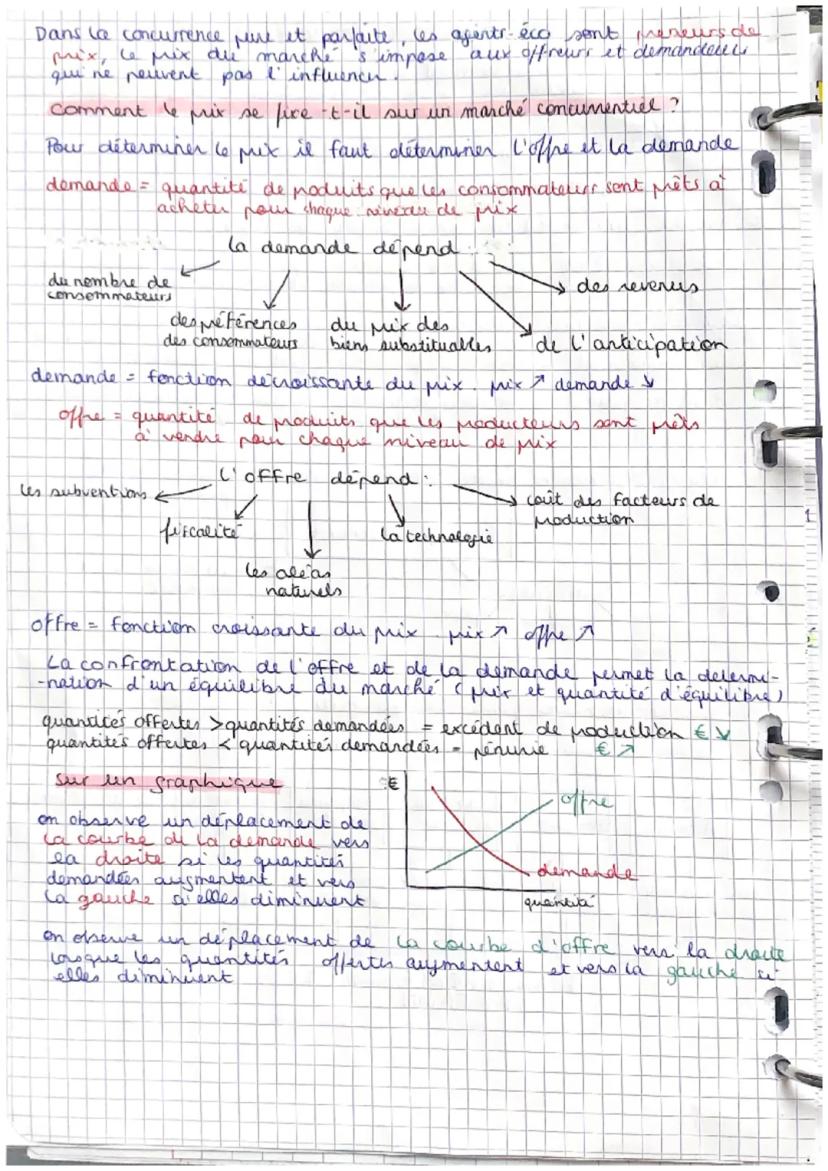 Dans la concurrence pure et parfaite, les agents-éco sont preneurs de
prix, le prix du marché s'impose aux offreurs et demandeurs
qui ne peuvent pas l'influencer.
Comment le prix se fixe-t-il sur un marché concurrentiel ?
Pour déterminer le prix il faut déterminer l'offre et la demande
demande = quantité de produits que les consommateurs sont prêts à
acheter pour chaque niveau de prix
la demande dépend
du nombre de
consommateurs
des préférences
des consommateurs
du prix des
biens substituables
de l'anticipation
des revenus
demande = fonction décroissante du prix. prix ↗ demande ↘
offre = quantité de produits que les producteurs sont prêts
à vendre pour chaque niveau de prix
L'offre dépend :
les subventions
fiscalité
les aléas
naturels
la technologie
coût des facteurs de
production
offre = fonction croissante du prix. prix ↗ offre ↗
La confrontation de l'offre et de la demande permet la determi-
-nation d'un équilibre du marché (prix et quantité d'équilibre)
quantités offertes > quantités demandées = excédent de production € ↘
quantités offertes < quantités demandées = pénurie € ↗
Sur un graphique
on observe un déplacement de
la courbe de la demande vers
la droite si les quantités
demandées augmentent et vers
la gauche si elles diminuent
€
offre
demande
quantité
on observe un déplacement de la courbe d'offre vers la droite
lorsque les quantités offertes augmentent et vers la gauche si
elles diminuent